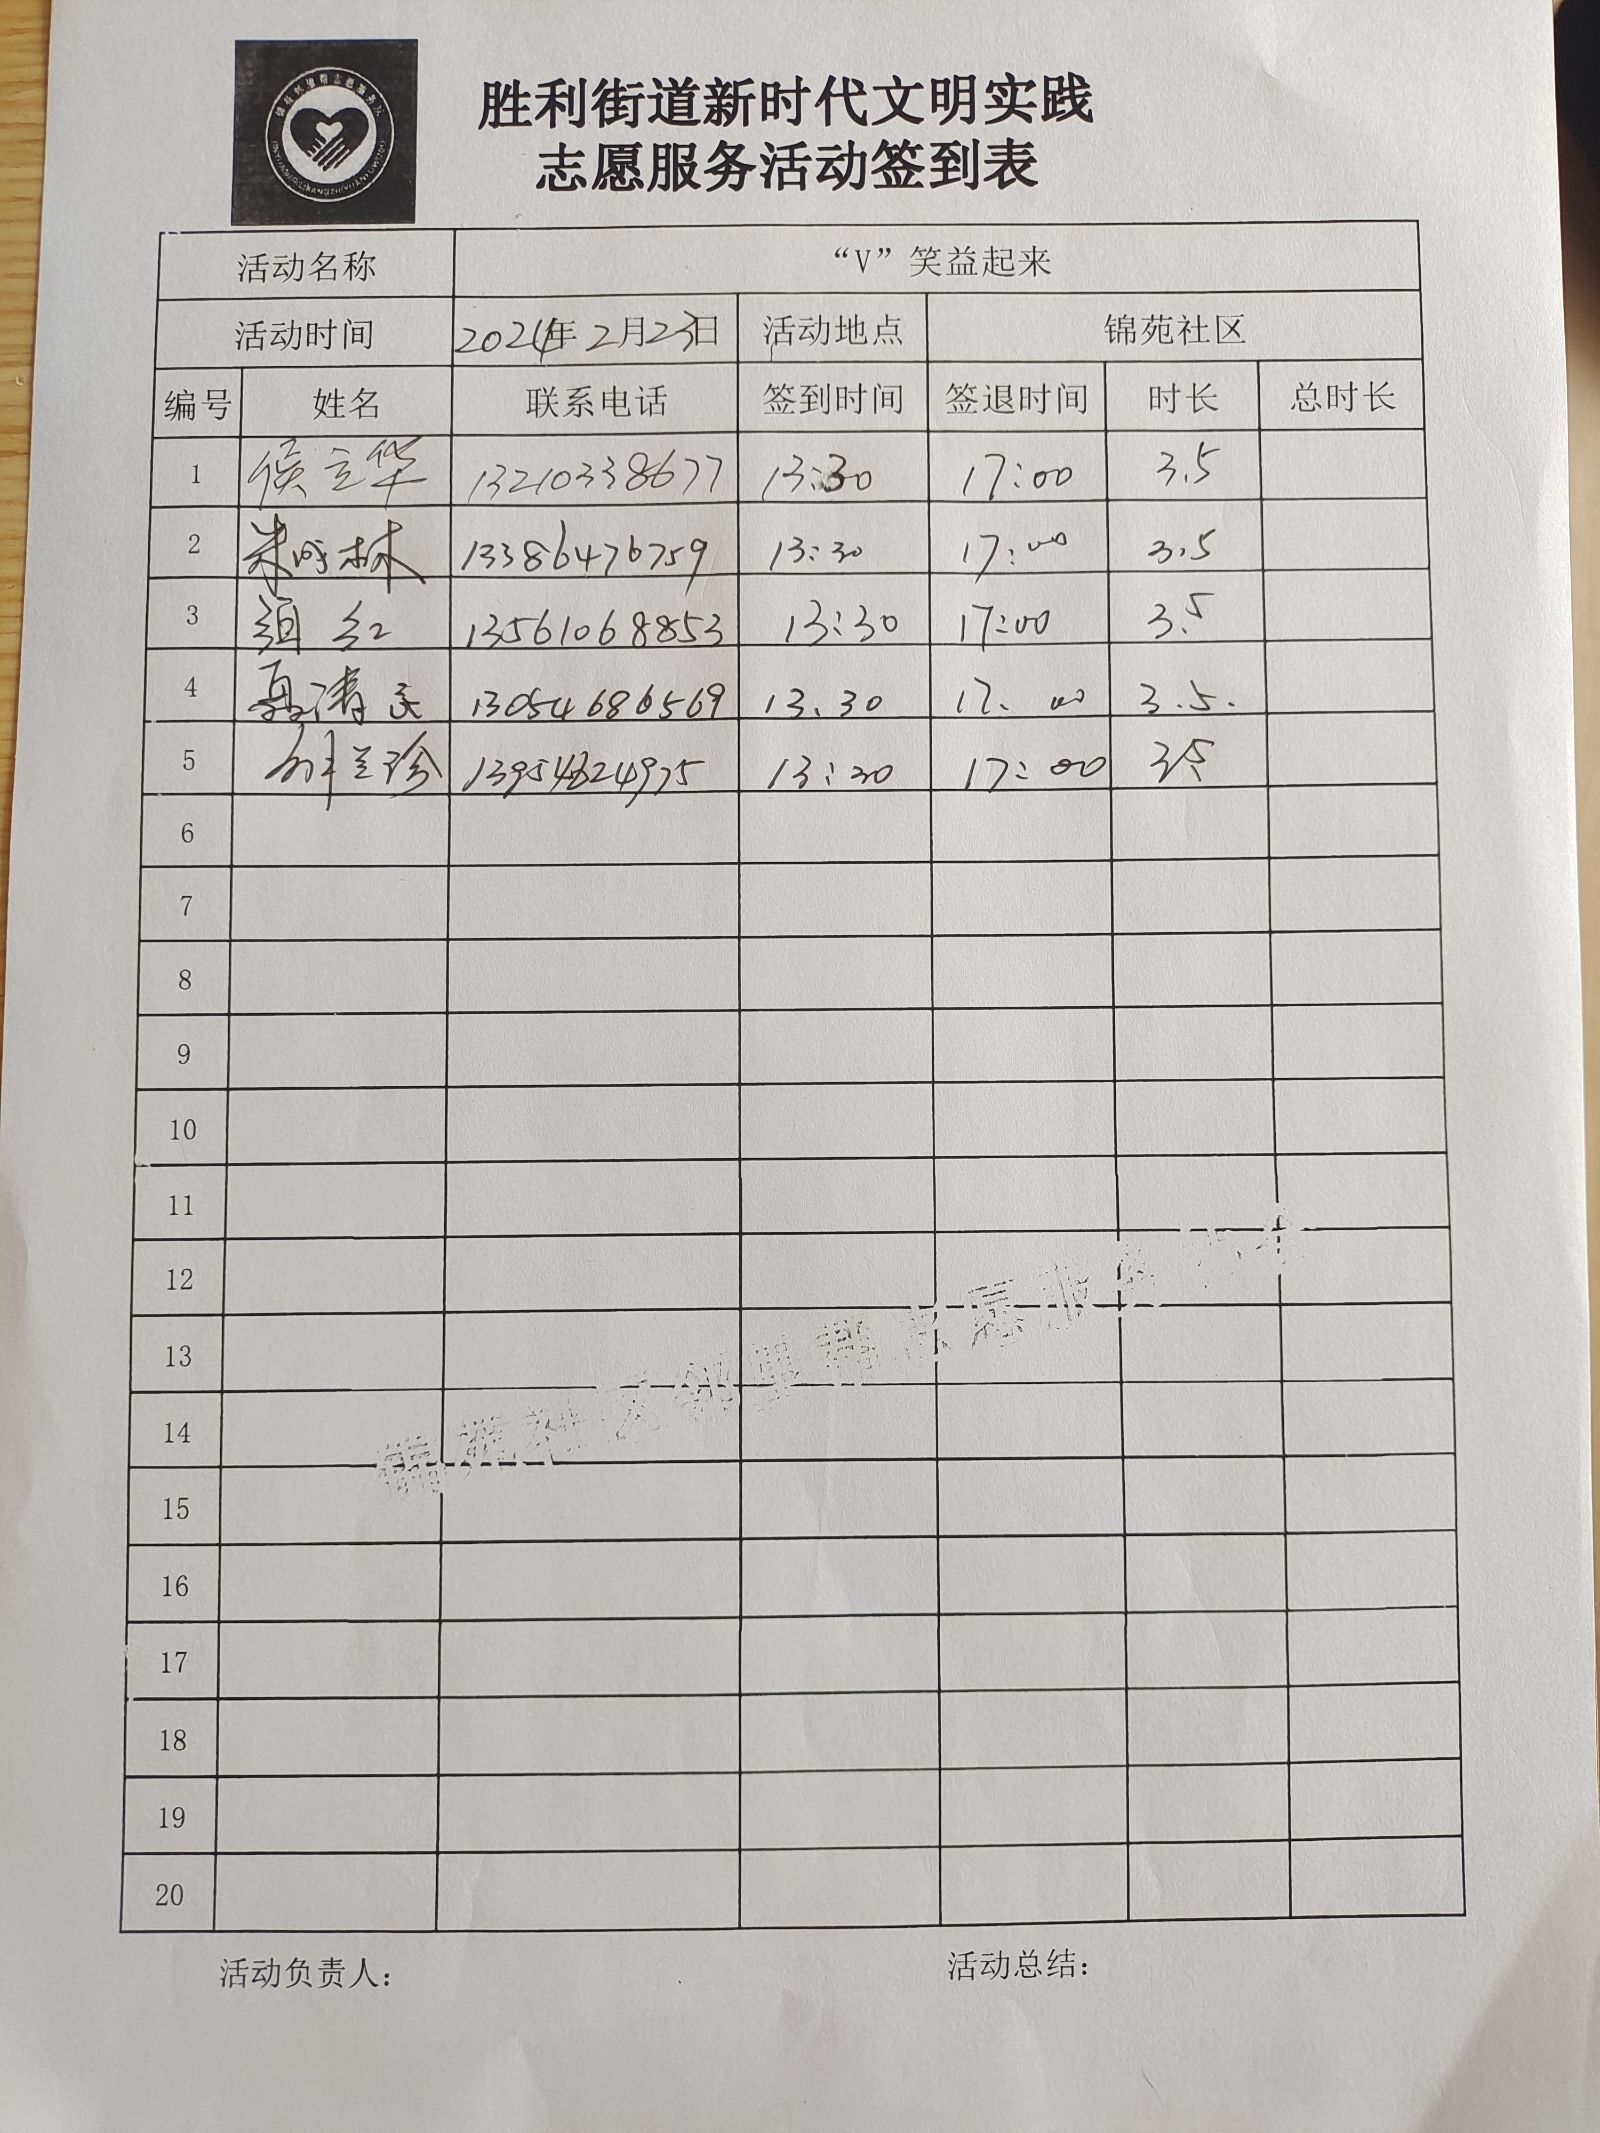 胜利街道新时代文明实践
志愿服务活动签到表
活动名称 “V”笑益起来
活动时间 2024年2月23日 活动地点 锦苑社区
编号 姓名 联系电话 签到时间 签退时间 时长 总时长
1 侯立华 13210338677 13:30 17:00 3.5
2 朱 林 13386476759 13:30 17:00 3.5
3 红 13561068853 13:30 17:00 3.5
4 夏清 13054686569 13.30 17. 00 3.5.
5 兰珍 13:30 17:00 3.5
6
7
8
9
10
11
12
13
14
15
16
17
18
19
20
锦苑社区邻里帮志愿服务
活动负责人: 活动总结: